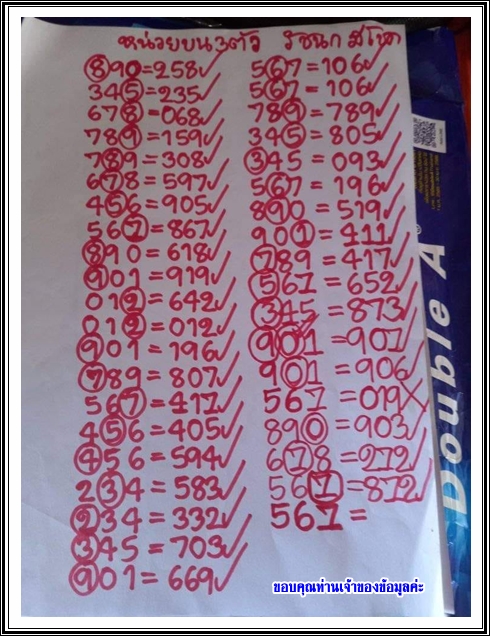 หน่วยบน 3 ตัว รัชนก มีโชค
890=258✓
345=235✓
678=068✓
789=159✓
789=308✓
678=597✓
456=905✓
567=867✓
890=618✓
901=919✓
012=642✓
012=012✓
901=196✓
789=807✓
567=417✓
456=405✓
456=594✓
234=583✓
234=332✓
345=703✓
901=669✓
567=106✓
567=106✓
789=789✓
345=805✓
345=093✓
567=196✓
890=519✓
901=411✓
789=417✓
567=652✓
345=873✓
901=901✓
901=906✓
567=019✗
890=903✓
678=272✓
567=872✓
567=
Double A
ขอบคุณท่านเจ้าของข้อมูลค่ะ